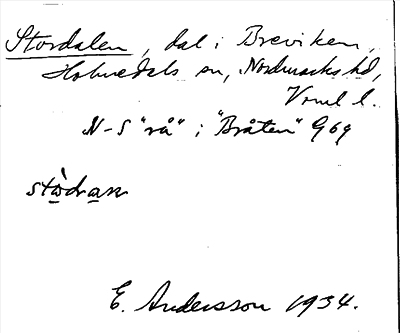 Stordalen, dal i Breviken,
Holmedals sn, Nordmarks hd,
Vrml l.
N-S "rå" i "Bråten" G69
stòdran
E. Andersson 1934.